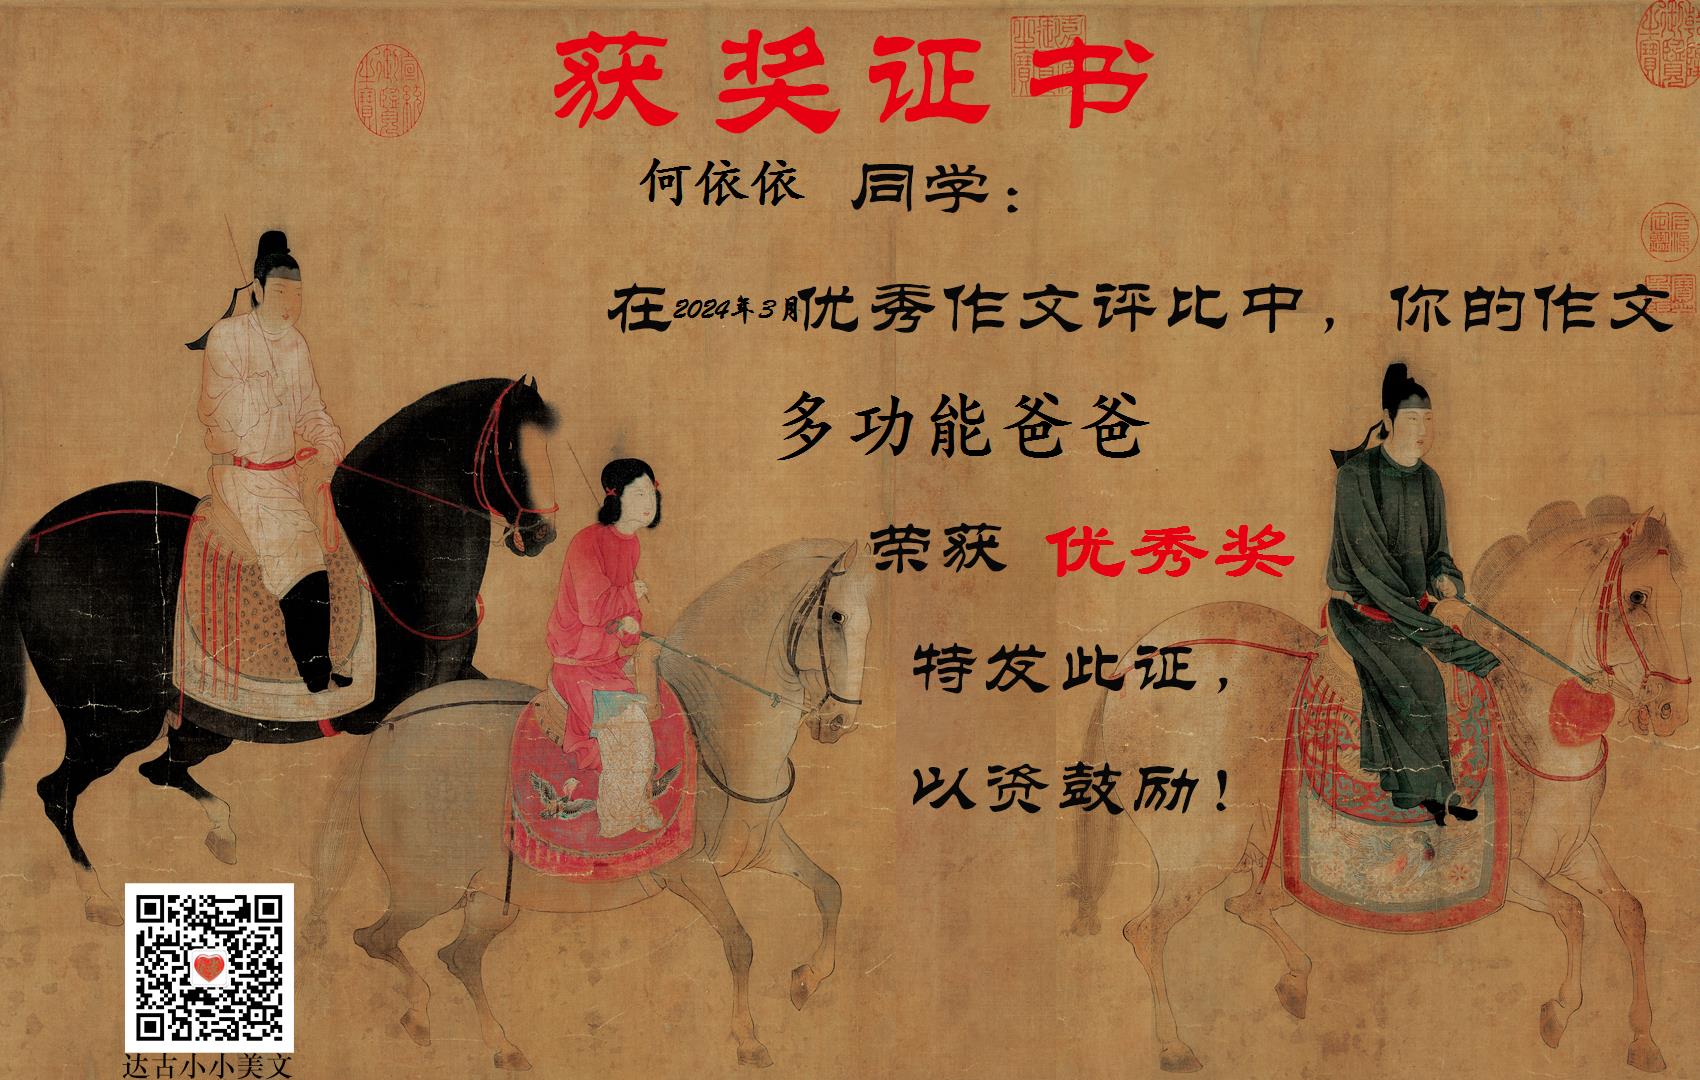 获奖证书
何依依 同学：
在2024年3月优秀作文评比中，你的作文
多功能爸爸
荣获 优秀奖
特发此证，
以资鼓励！
达古小小美文